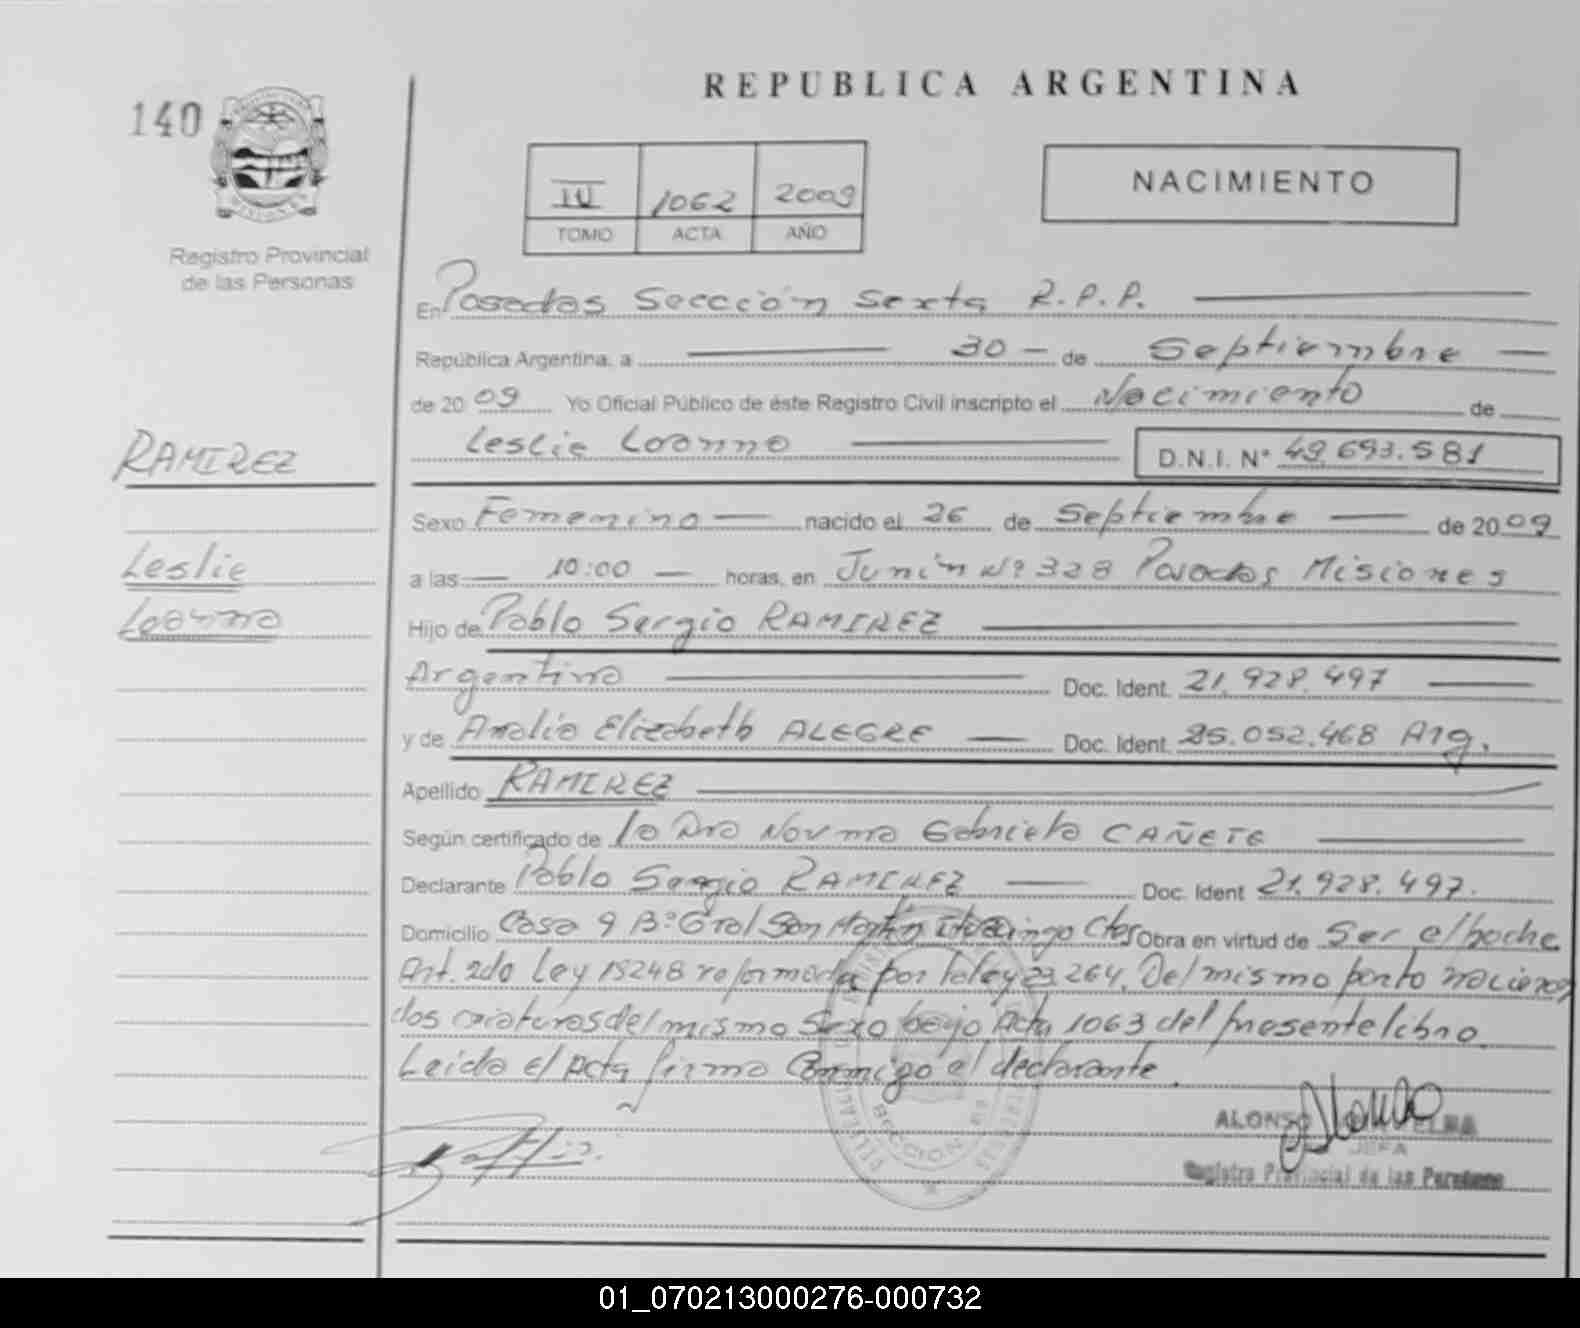 REPUBLICA ARGENTINA
140
NACIMIENTO
1062 2009
TOMO ACTA AÑO
Registro Provincial
de las Personas
En Posadas Sección Sexta R.P.P.
República Argentina, a 30 de Septiembre
de 2009 Yo Oficial Público de éste Registro Civil inscripto el Nacimiento de
RAMIREZ
Leslie Loanna D.N.I. N° 49.693.581
Sexo Femenino nacido el 26 de Septiembre de 2009
Leslie
Loanna
a las 10:00 horas, en Junín Nº 328 Posadas Misiones
Hijo de Pablo Sergio RAMIREZ
Argentino Doc. Ident. 21.928.497
y de Analia Elizabeth ALEGRE Doc. Ident. 25.052.468 Arg.
Apellido RAMIREZ
Según certificado de la Dra Norma Gabriela CAÑETE
Declarante Pablo Sergio RAMIREZ Doc. Ident 21.928.497.
Domicilio Casa 9 B° Gral San Martín Ituzaingo Ctes Obra en virtud de Ser el padre
Art. 2do Ley 18248 reformada por la ley 23.264. Del mismo parto nacieron
dos criaturas del mismo Sexo bajo Acta 1063 del presente libro.
Leida el Acta firma Conmigo el declarante.
SECCION
ALONSO ELBA
JEFA
Registro Provincial de las Personas
01_070213000276-000732